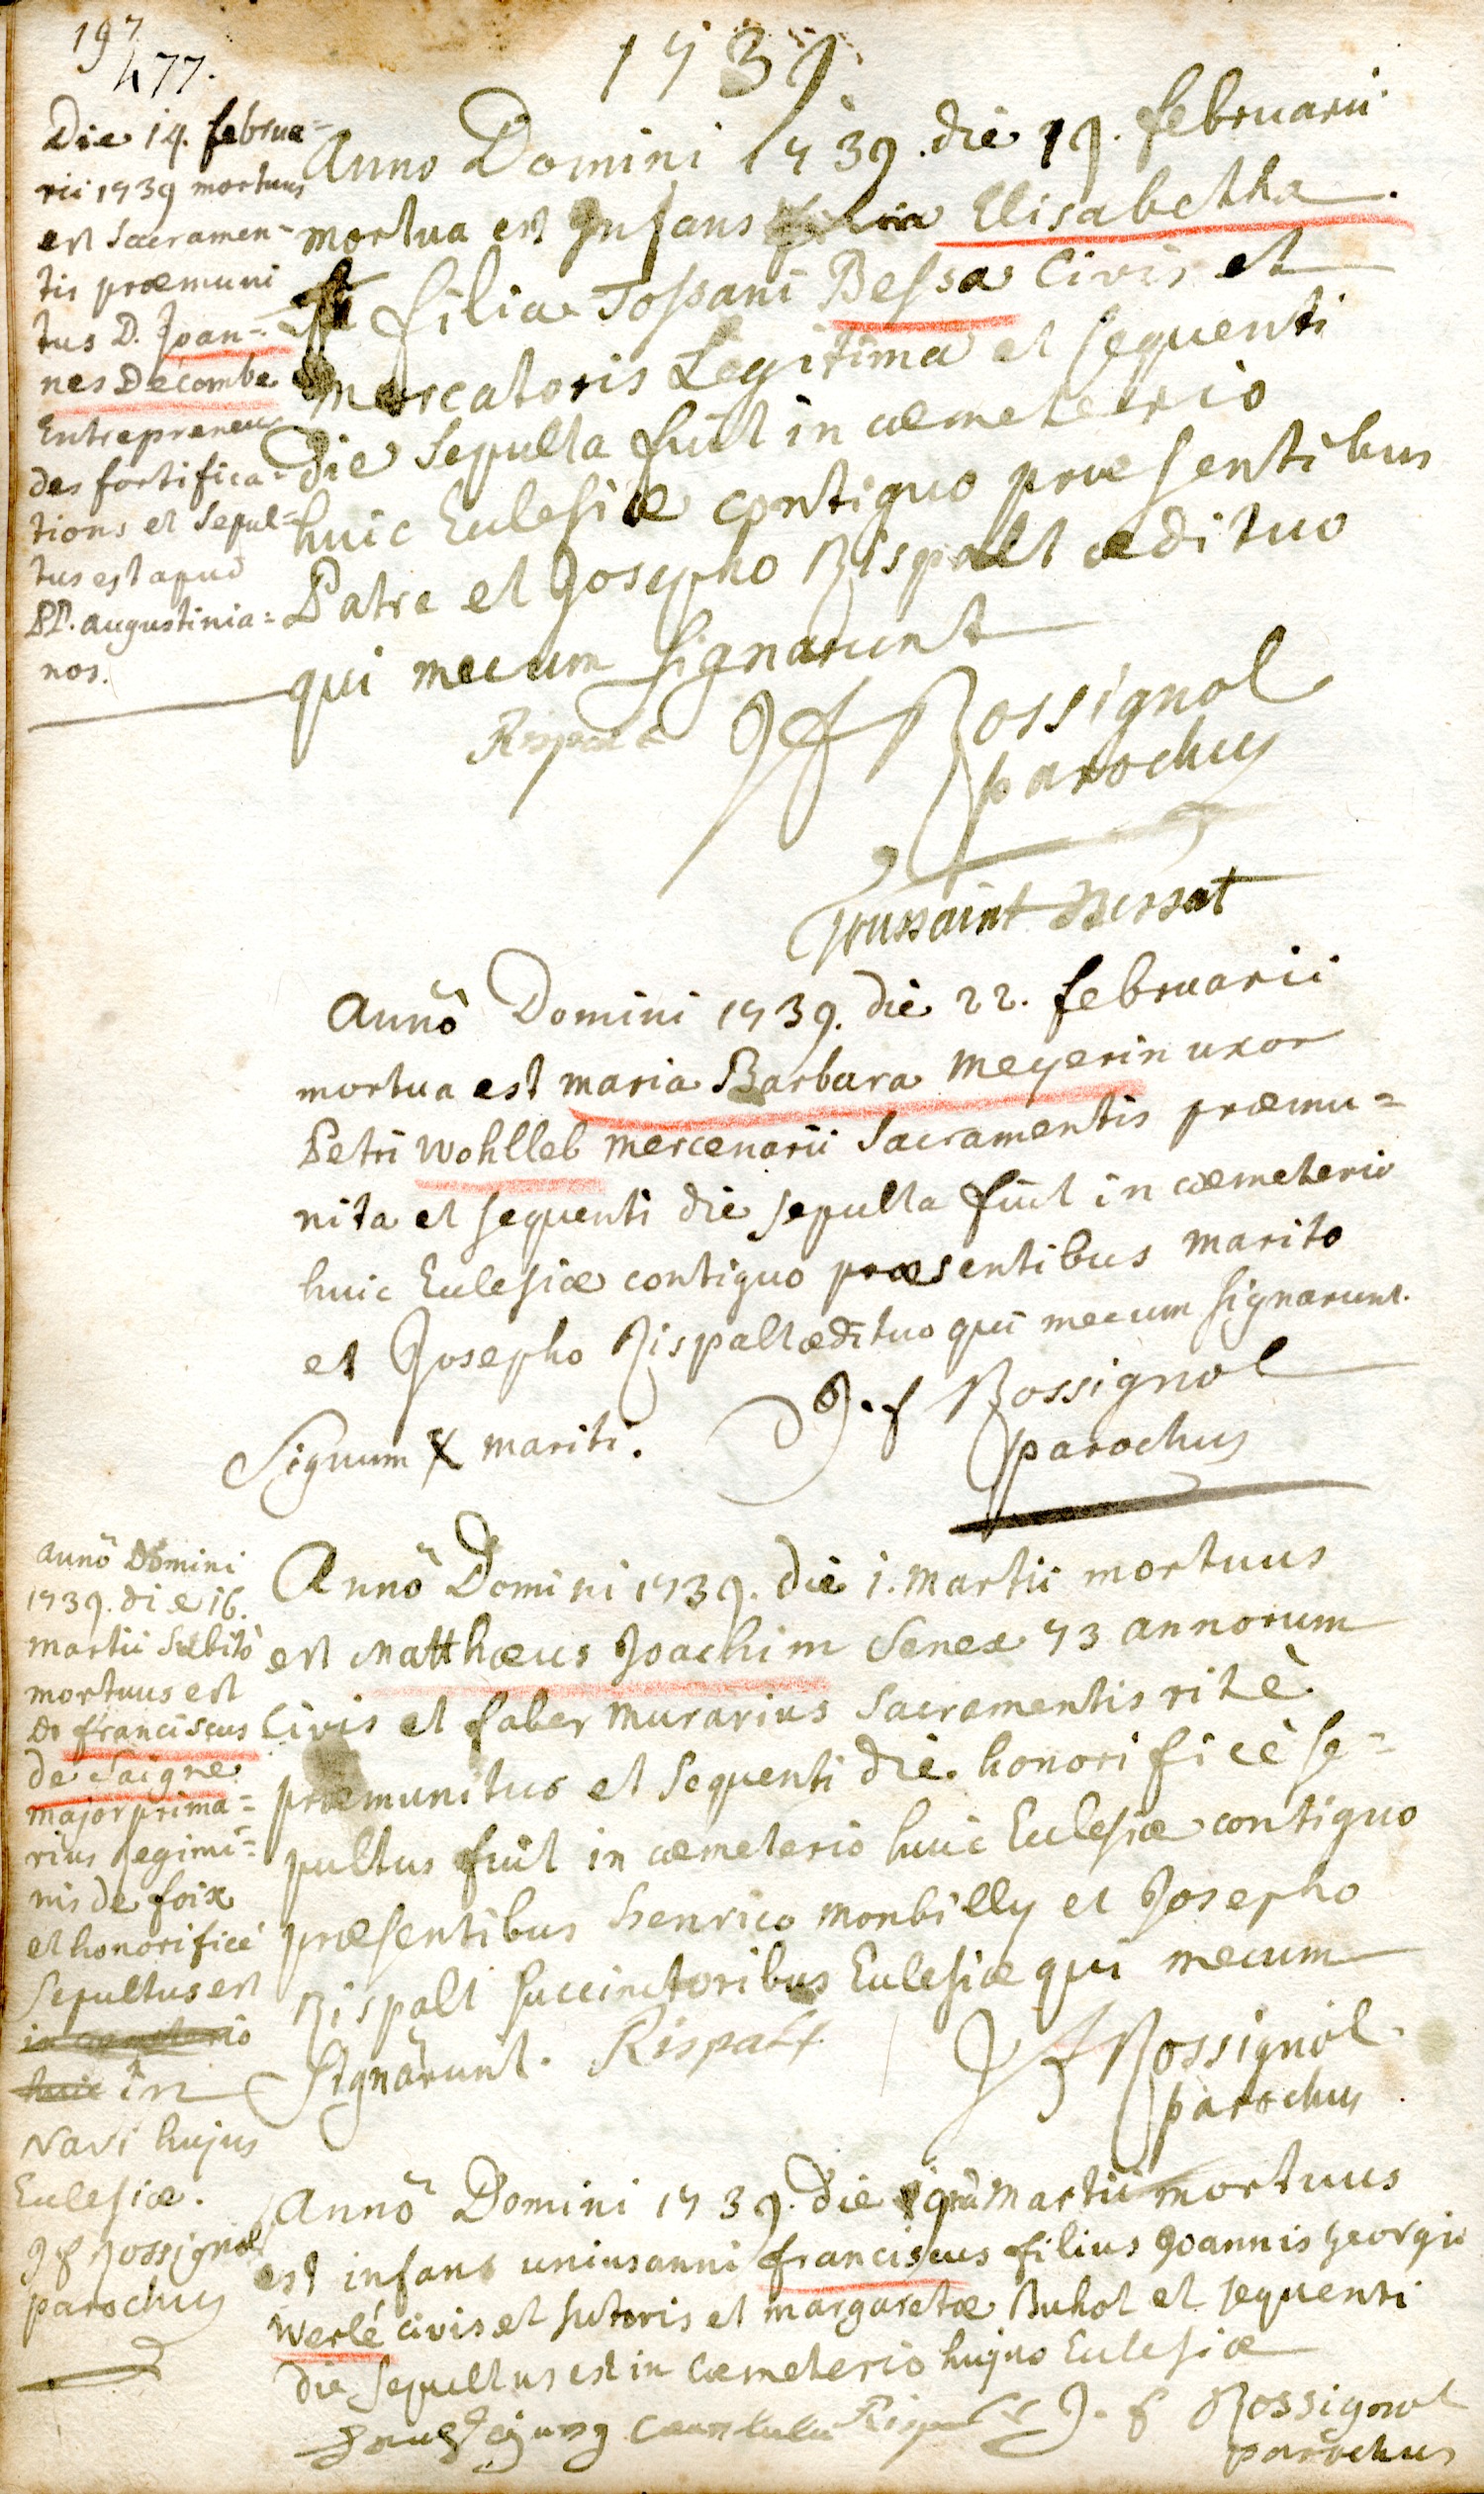 197
477.
1739.
Die 14. februa=
rii 1739 mortuus
est Sacramen=
tis præmuni
tus D. Joan=
nes Decombe
Entrepreneur
des fortifica=
tions et Sepul=
tus est apud
PP. augustinia=
nos.
Anno Domini 1739. die 19. februarii
mortua est Infans Elisabetha
filia Tossani Bessa Civis et
mercatoris Legitima et sequenti
die Sepulta fuit in cœmeteerio
huic Eclesiæ contiguo præsentibus
Patre et Josepho Rispalt ædituo
qui mecum signarunt
Rispalt JF Rossignol
parochus
Toussaint Bessat
Annõ Domini 1739. die 22. februarii
mortua est maria Barbara Meyerin uxor
Petri Wohlleb mercenarii Sacramentis præmu=
nita et sequenti die sepulta fuit in cœmeterio
huic Eclesiæ contiguo præsentibus marito
et Josepho Rispalt ædituo qui mecum signarunt.
Signum X mariti. J. f Rossignol
parochus
Annõ Domini
1739. die 16.
martii Subitò
mortuus est
Ds franciscus
de Saigne
major prima=
rius regimi=
nis de foix
et honorificè
Sepultus est
in cœmeterio
huic in
Navi hujus
Eclesiæ.
J f Rossignol
parochus
Annõ Domini 1739. die 1. Martii mortuus
est Matthæus Joachim Senex 73 annorum
Civis et faber murarius Sacramentis ritè
præmunitus et Sequenti die honorificè se=
pultus fuit in cœmeterio huic Eclesiæ contiguo
præsentibus henrico monbilly et Josepho
Rispalt succinctoribus Eclesiæ qui mecum
signarunt. Rispalt JF Rossignol
parochus
Annõ Domini 1739. die Martii mortuus
est infans unius anni franciscus filius Joannis georgii
Werlé civis et sutoris et margaretæ Buhot et sequenti
die sepultus est in Cœmeterio hujus Eclesiæ
J. f Rossignol
parochus